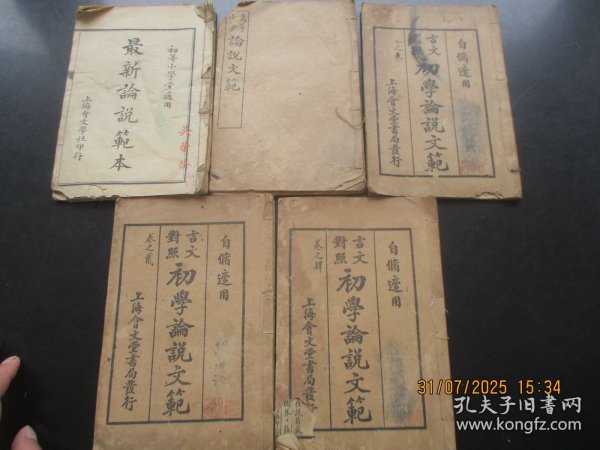 初等小學堂適用
最新論說範本
上海會文學社印行
論說文範
自脩適用
言文
初學論說文範
上海會文堂書局發行
自脩適用
言文對照
初學論說文範
卷之貳
上海會文堂書局發行
自脩適用
言文對照
初學論說文範
卷之肆
上海會文堂書局發行
31/07/2025 15:34
孔夫子旧书网